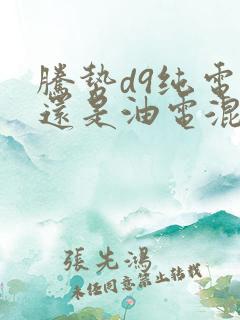 騰勢d9纯電
還是油電混
張先鴻
未經同意禁止轉載